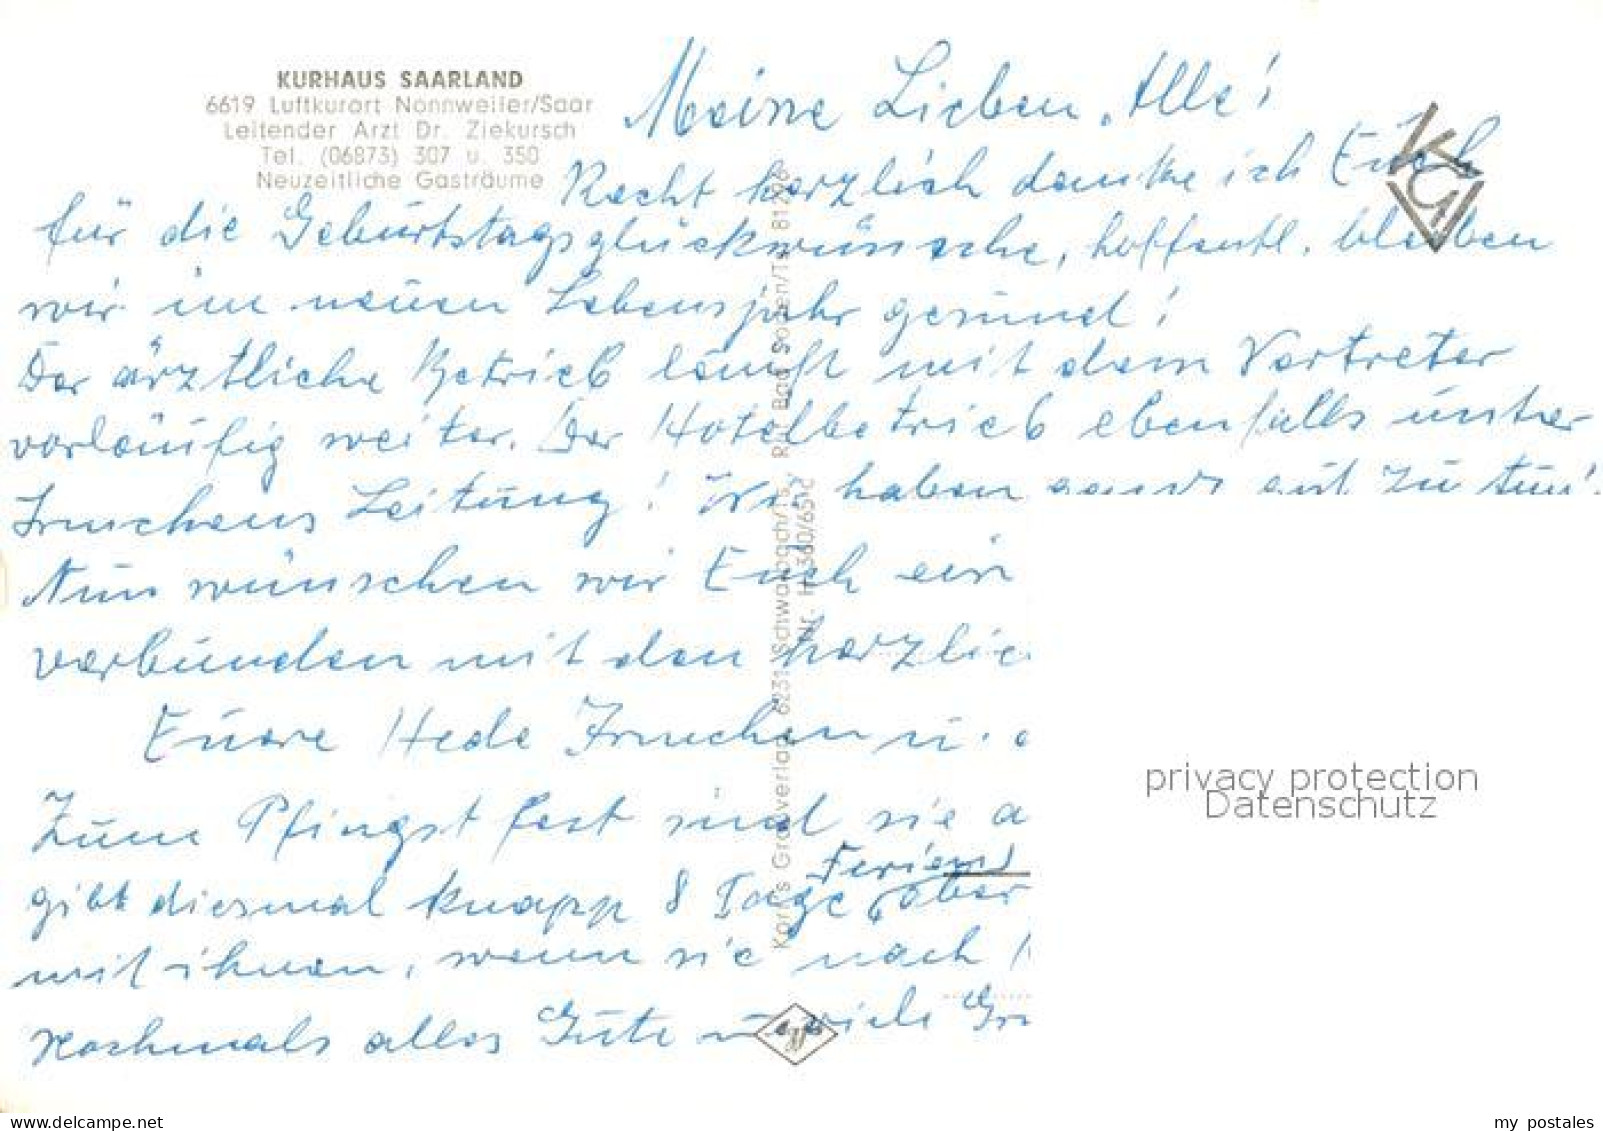 KURHAUS SAARLAND
6619 Luftkurort Nonnweiler/Saar
Leitender Arzt Dr. Ziekursch
Tel. (06873) 307 u. 350
Neuzeitliche Gasträume
Meine Lieben Alle!
Recht herzlich danke ich Euch
für die Geburtstagsglückwünsche, hoffentl. bleiben
wir im neuen Lebensjahr gesund!
Der ärztliche Betrieb läuft mit dem Vertreter
vorläufig weiter. Der Hotelbetrieb ebenfalls unter
Irmchens Leitung! Wir haben ganz gut zu tun!
Nun wünschen wir Euch ein
verbunden mit den herzlic
Euere Hede Irmchen u.
Zum Pfingstfest sind sie a
gibt diesmal knapp 8 Tage Ferien, aber
mit ihnen, wenn sie nach
Nochmals alles Gute u. viele Gr
Korr's Großverlag, 6231 Schwalbach/Ts., Ruf Bad Soden/Ts. 81298
Nr. H 360/651 c
privacy protection
Datenschutz
www.delcampe.net
my_postales